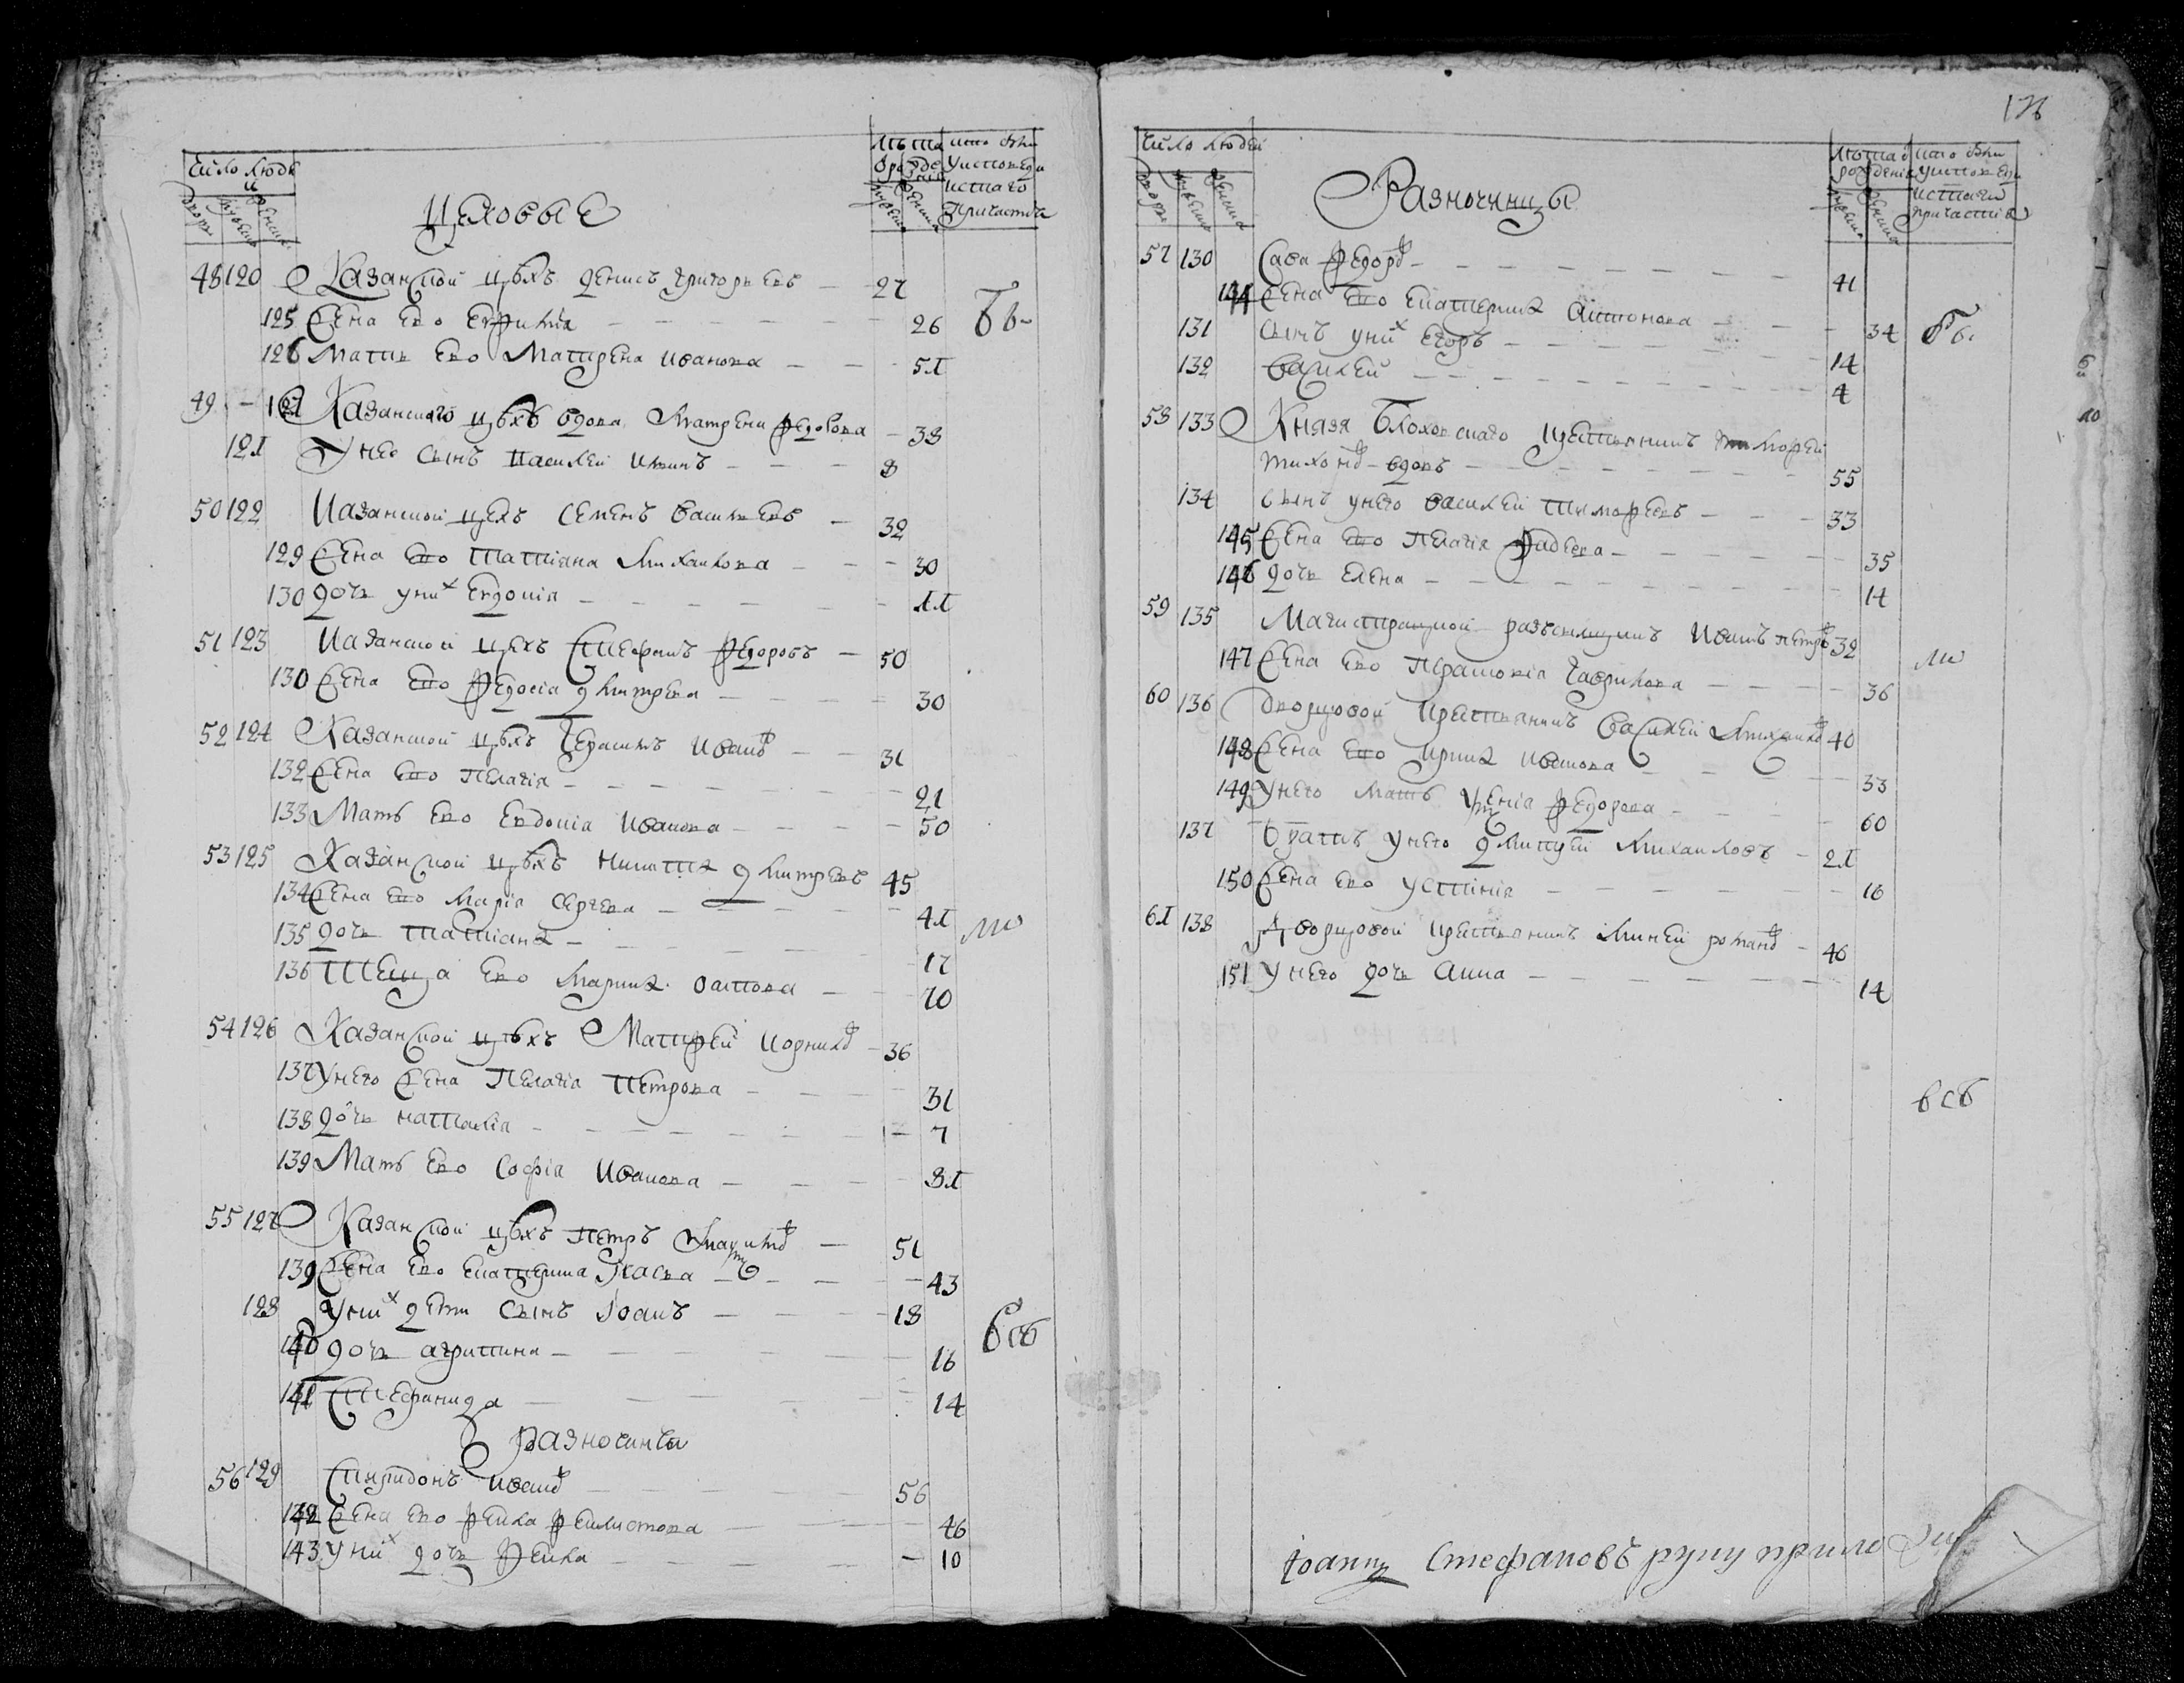 Число людей
дворы
мужеска
женска
Цеховые
лѣта о рожденіи
мужеска
женска
кто были у исповеди и с[вя]таго причастия
48 120 Казанской цѣхъ Денисъ Григорьевъ 27
125 Жена ево Евфимiа 26 Бы
126 Мать ево Матрена Иванова 51
49 121 Казанскаго цѣхъ вдова Матрена Федорова 38
121 У нее сынъ Василей 8
50 122 Казанской цехъ Семенъ Васильевъ 32
129 Жена ево Татiана Михаилова 30
130 дочь у них Евдокiя 11
51 123 Казанской цехъ Стефанъ Федоровъ 50
130 Жена ево Федосiа Дмитрева 30
52 124 Казанской цѣхъ Герасимъ Ивановъ 31
132 Жена ево Пелагiя 21
133 Мать ево Евдокiа Иванова 50
53 125 Казанской цѣхъ Никита Дмитревъ 45
134 Жена ево Марiа Сергева 41
135 дочь Татiана 17
136 Теща ево Марина 70
54 126 Казанской цѣхъ Матфей Корнилов 36
137 У него жена Пелагiа Петрова 31
138 дочь Наталiа 7
139 Мать ево Софiа Иванова 81
55 127 Казанской цѣхъ Петръ 51
139 Жена ево Екатерина 43
128 У них дети сынъ Iванъ 18
140 дочь Агрипина 16 Всѣ
141 Стефанида 14
Разночинцы
56 129 Спиридонъ Иванов 56
142 Жена ево Фекла Феклистова 46
143 У них дочь Фекла 10
Число людей
дворы
мужеска
женска
Разночинцы
лѣта о рожденiи
кто были у исповеди и с[вя]таго причастiа
57 130 Сава Федоров 41
144 Жена ево Екатерина Антонова 34 Бы
131 сынъ у них Егоръ 14
132 Василей 4
58 133 Князя Болховскаго крестьянинъ Тимофей
Тихонов вдовъ 55
134 сынъ у него Василей Тимофеевъ 33
145 Жена ево Пелагiя Фадеева 35
146 дочь Елена 14
59 135 Магистрацкой разсыльщикъ Иванъ Петровъ 32
147 Жена ево Прасковiа Гаврилова 36
60 136 Дворцовой крестьянинъ Василей Михаилов 40
148 Жена ево Ирина Иванова 33
149 У него мать Ксенiа Федорова 60
137 Братъ у него Дмитрей Михаиловъ 21
150 Жена ево Устинiа 16
61 138 Дворцовой крестьянинъ Миней Романов 46
151 У него дочь Анна 14
всѣ
Iоаннъ Стефановъ руку прило